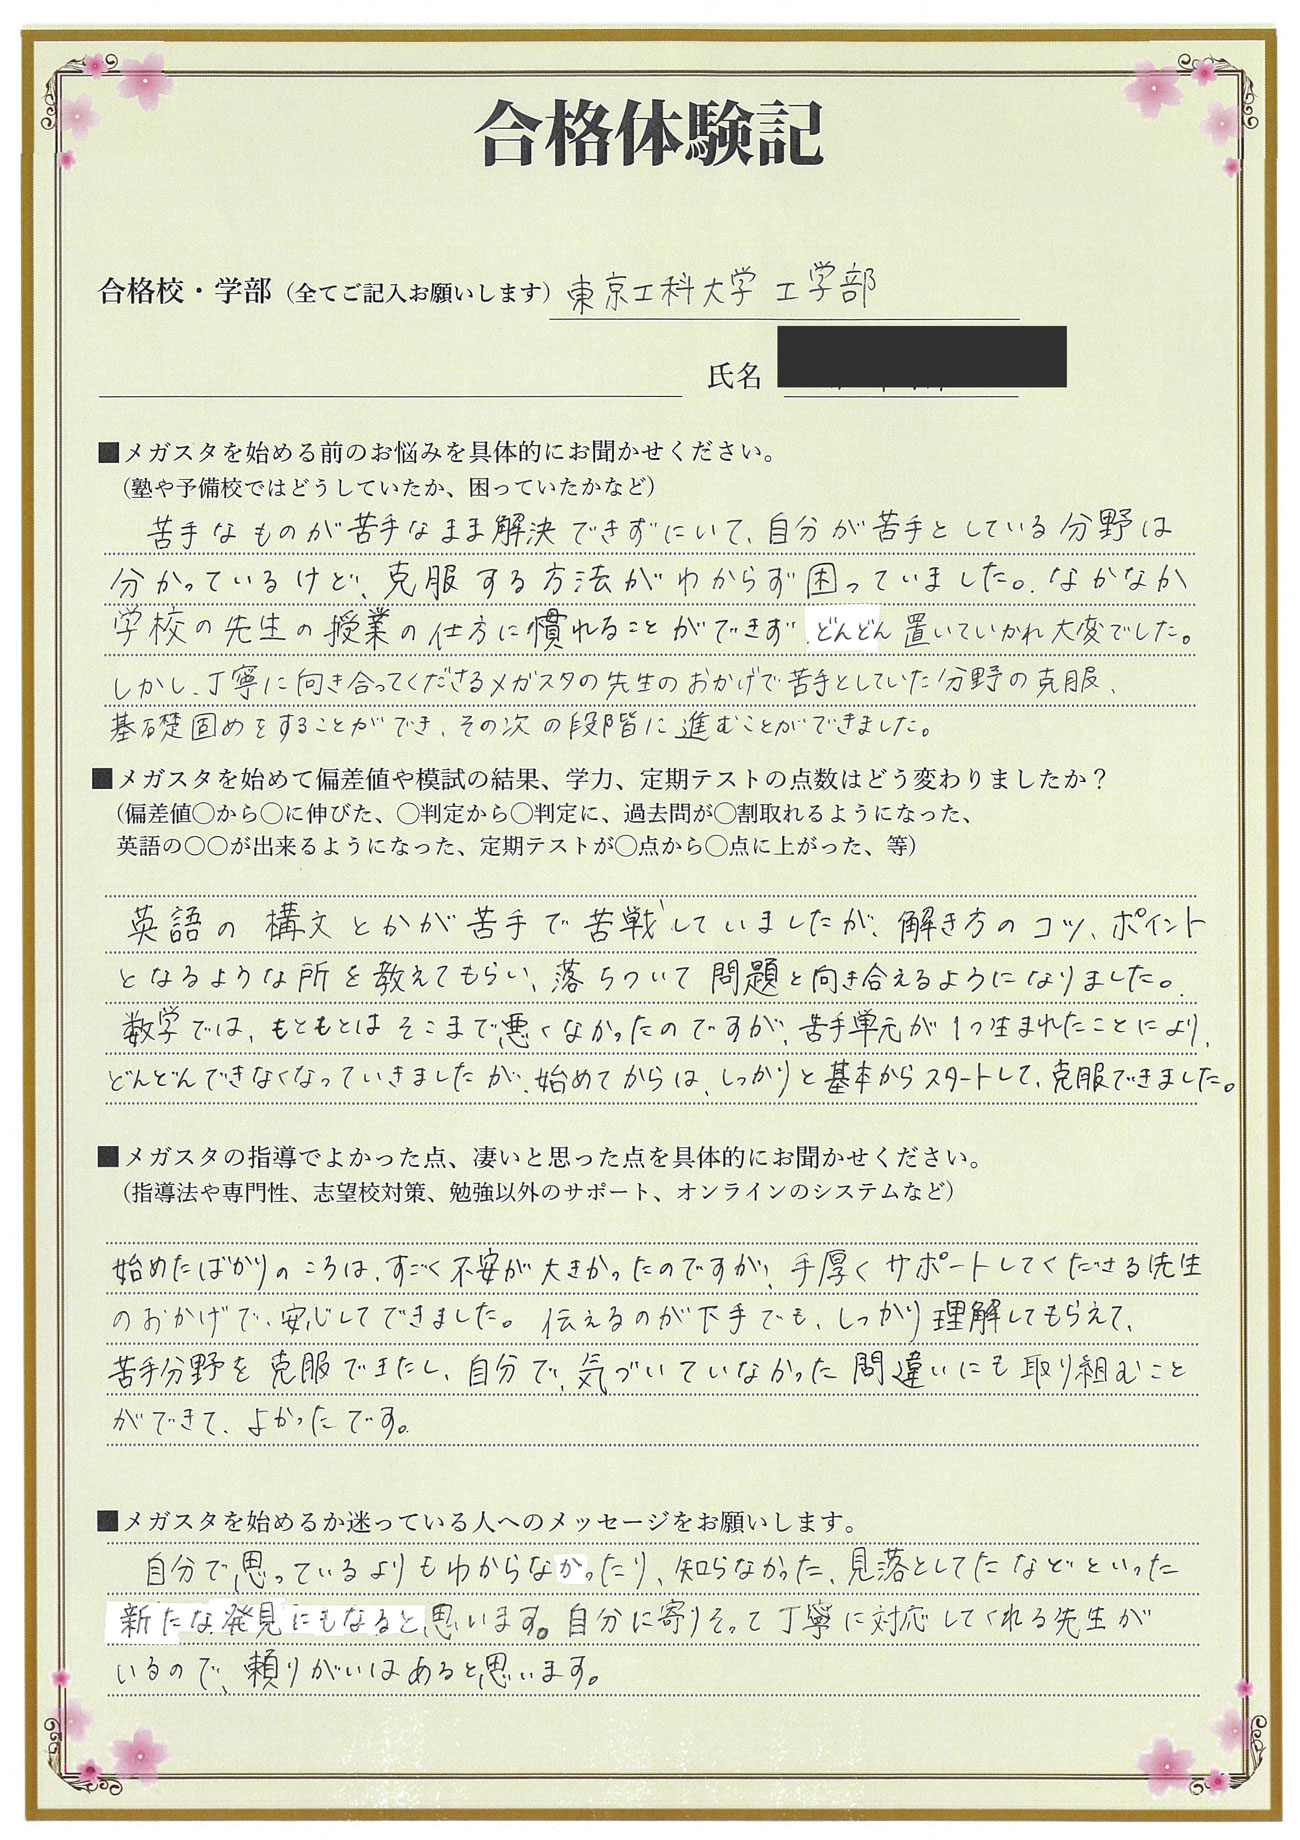 合格体験記
合格校・学部（全てご記入お願いします）東京工科大学 工学部
氏名
■メガスタを始める前のお悩みを具体的にお聞かせください。
（塾や予備校ではどうしていたか、困っていたかなど）
苦手なものが苦手なまま解決できずにいて、自分が苦手としている分野は
分かっているけど、克服する方法がわからず困っていました。なかなか
学校の先生の授業の仕方に慣れることができず、どんどん置いていかれ大変でした。
しかし、丁寧に向き合ってくださるメガスタの先生のおかげで苦手としていた分野の克服、
基礎固めをすることができ、その次の段階に進むことができました。
■メガスタを始めて偏差値や模試の結果、学力、定期テストの点数はどう変わりましたか？
（偏差値〇から〇に伸びた、〇判定から〇判定に、過去問が〇割取れるようになった、
英語の〇〇が出来るようになった、定期テストが〇点から〇点に上がった、等）
英語の構文とかが苦手で苦戦していましたが、解き方のコツ、ポイント
となるような所を教えてもらい、落ちついて問題と向き合えるようになりました。
数学では、もともとはそこまで悪くなかったのですが、苦手単元が1つ生まれたことにより、
どんどんできなくなっていきましたが、始めてからは、しっかりと基本からスタートして、克服できました。
■メガスタの指導でよかった点、凄いと思った点を具体的にお聞かせください。
（指導法や専門性、志望校対策、勉強以外のサポート、オンラインのシステムなど）
始めたばかりのころは、すごく不安が大きかったのですが、手厚くサポートしてくださる先生
のおかげで、安心してできました。伝えるのが下手でも、しっかり理解してもらえて、
苦手分野を克服できたし、自分で、気づいていなかった間違いにも取り組むこと
ができて、よかったです。
■メガスタを始めるか迷っている人へのメッセージをお願いします。
自分で思っているよりもわからなかったり、知らなかった、見落としてたなどといった
新たな発見にもなると思います。自分に寄りそって丁寧に対応してくれる先生が
いるので、頼りがいはあると思います。